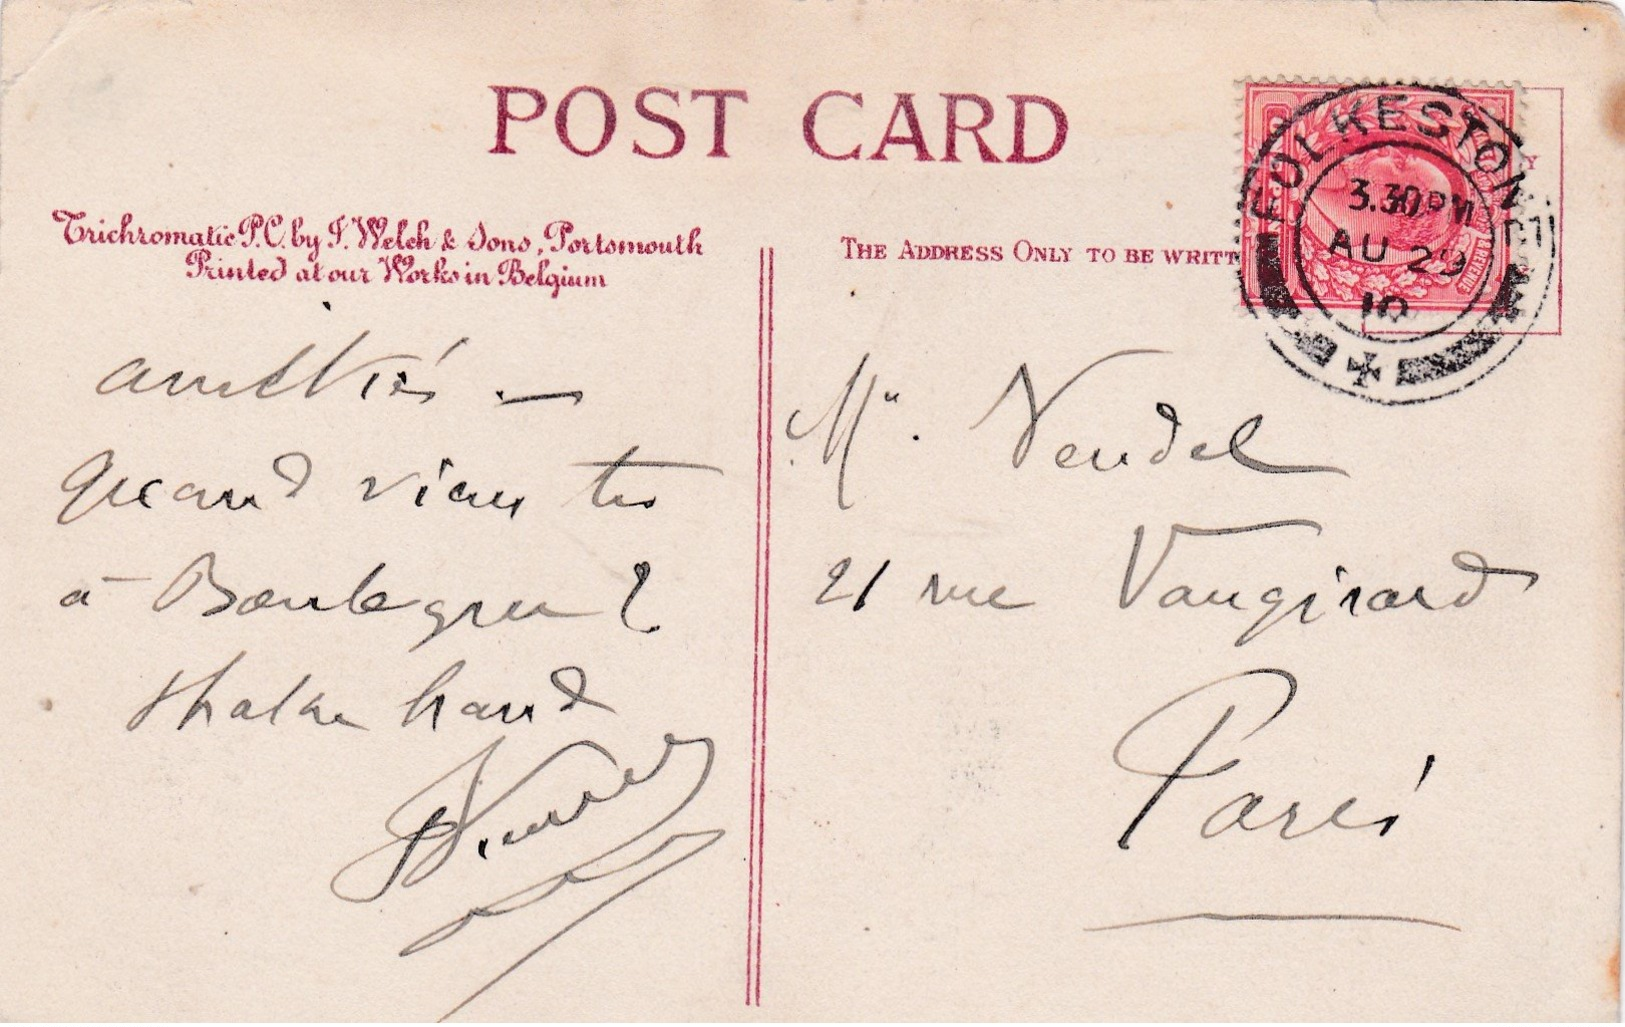 POST CARD
Trichromatic P.C. by F. Welch & Sons, Portsmouth
Printed at our Works in Belgium
THE ADDRESS ONLY TO BE WRITT
FOLKESTONE
3.30 PM
AU 29
10
amitiés —
quand viens tu
à Boulogne ?
shake hand
Mr. Vendel
21 rue Vaugirard
Paris